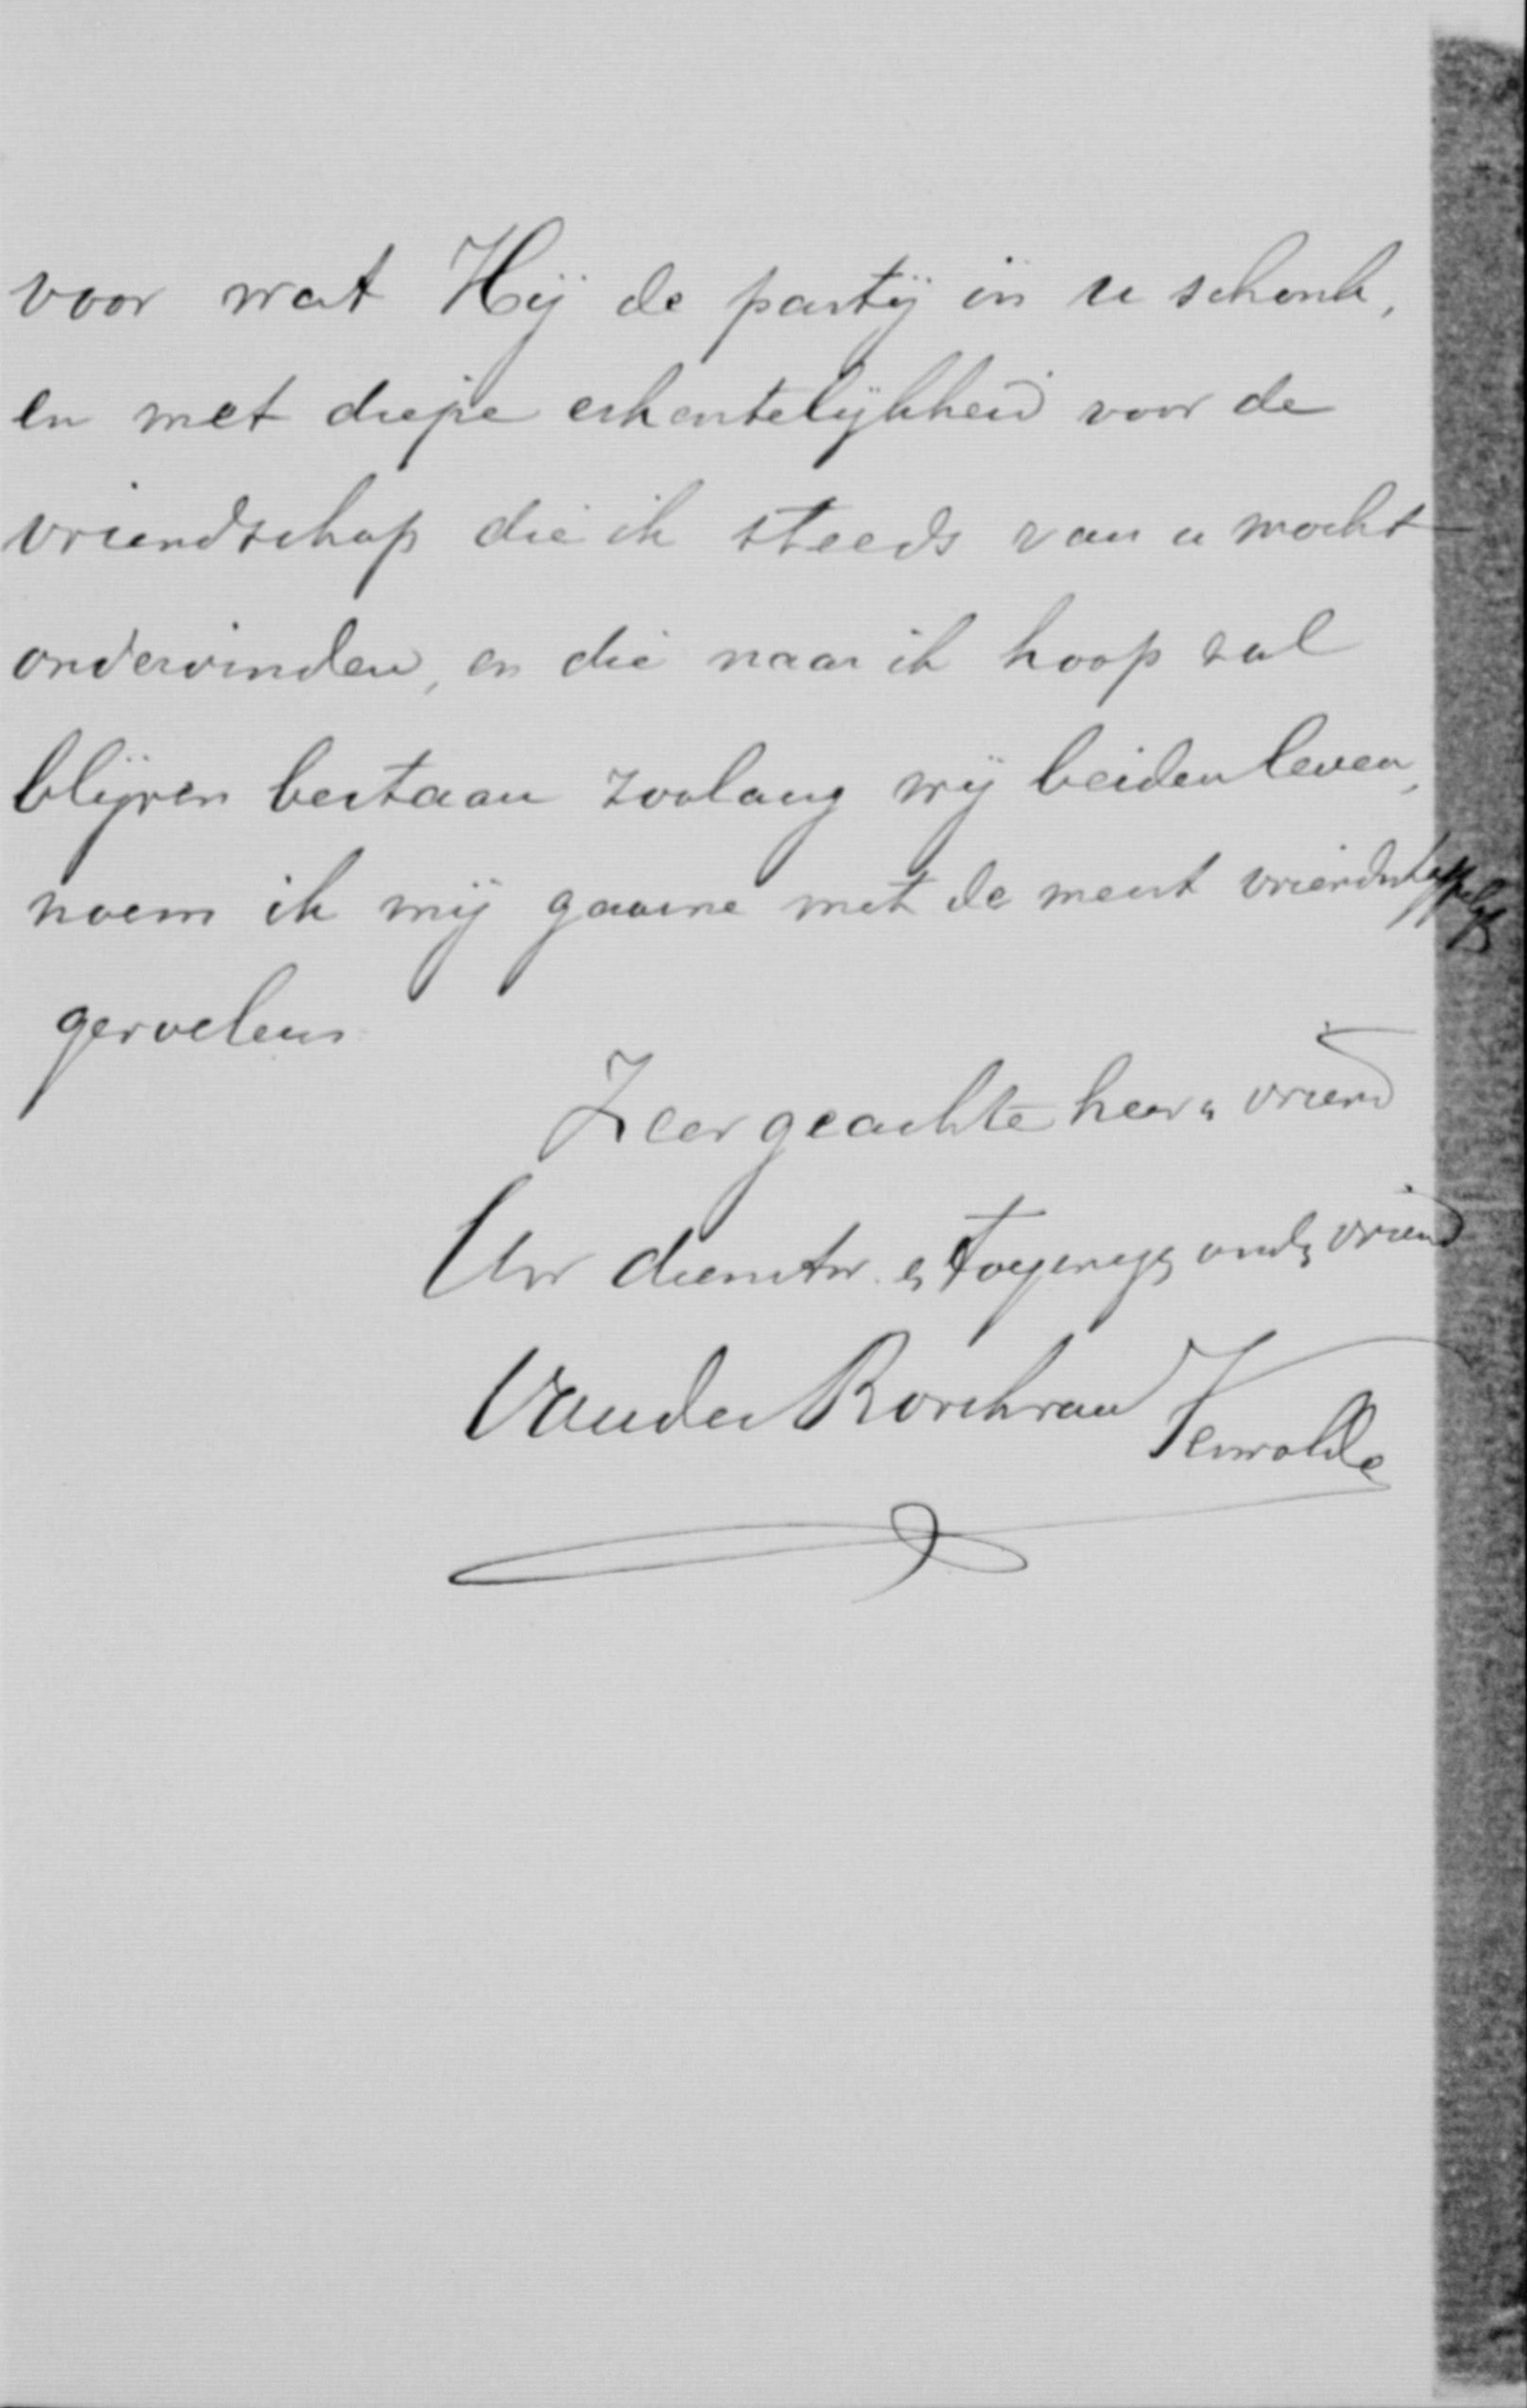 voor wat Hij de partij in u schonk,
en met diepe erkentelijkheid voor de
vriendschap die ik steeds van u mocht
ondervinden, en die naar ik hoop zal
blijven bestaan zoolang wij beiden leven,
noem ik mij gaarne met de meest vriendschappelijke
gevoelens
Zeer geachte heer en vriend
Uw dienstw. en toegeneg vriend
Van der Borch van
Verwolde